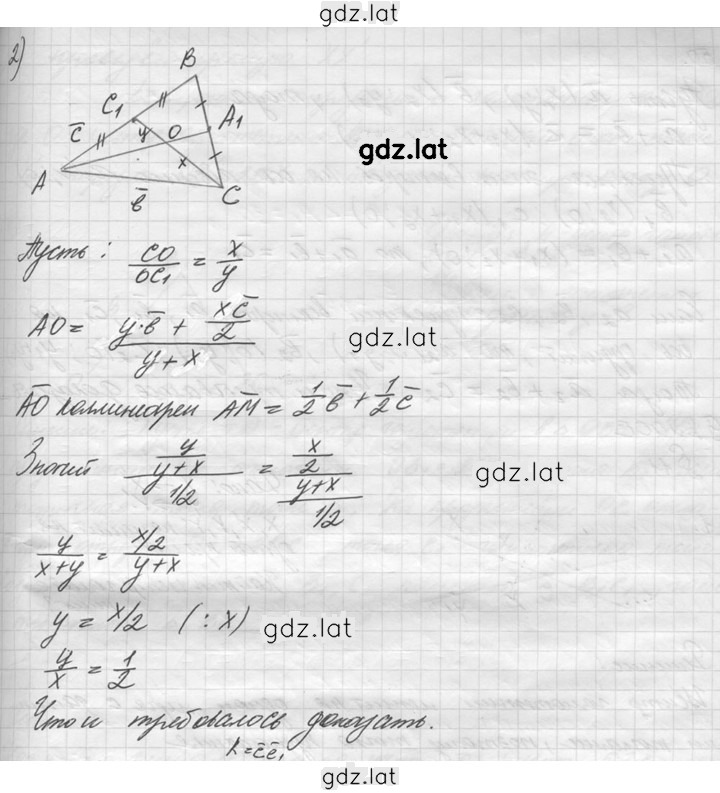 gdz.lat
2)
B
C₁
A₁
c̄
y
O
x
gdz.lat
A
C
b̄
Пусть: CO/OC₁ = x/y
AO = (y·b̄ + xc̄/2)/(y+x)
gdz.lat
A̅O̅ коллинеарен A̅M̅ = 1/2 b̄ + 1/2 c̄
Значит (y/(y+x))/(1/2) = ((x/2)/(y+x))/(1/2)
gdz.lat
y/(x+y) = (x/2)/(y+x)
y = x/2 (: x)
gdz.lat
y/x = 1/2
Что и требовалось доказать.
gdz.lat